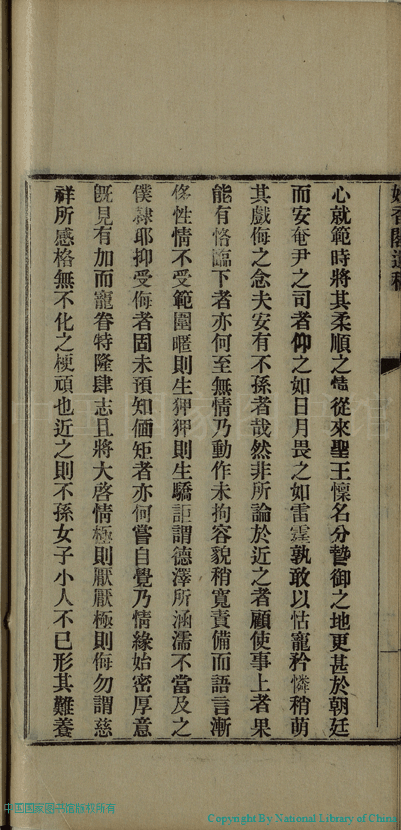 心就範時將其柔順之情從來聖王懍名分暬御之地更甚於朝廷
而安奄尹之司者仰之如日月畏之如雷霆孰敢以怙寵矜憐稍萌
其戲侮之念夫安有不孫者哉然非所論於近之者顧使事上者果
能有恪臨下者亦何至無情乃動作未拘容貌稍寬責備而語言漸
性情不受範圍暱則生狎狎則生驕詎謂德澤所涵濡不當及之
僕隸耶抑受侮者固未預知偭矩者亦何嘗自覺乃情緣始密厚意
旣見有加而寵眷特隆肆志且將大啓情極則厭厭極則侮勿謂慈
祥所感格無不化之梗頑也近之則不孫女子小人不已形其難養
中国国家图书馆版权所有
Copyright By National Library of China